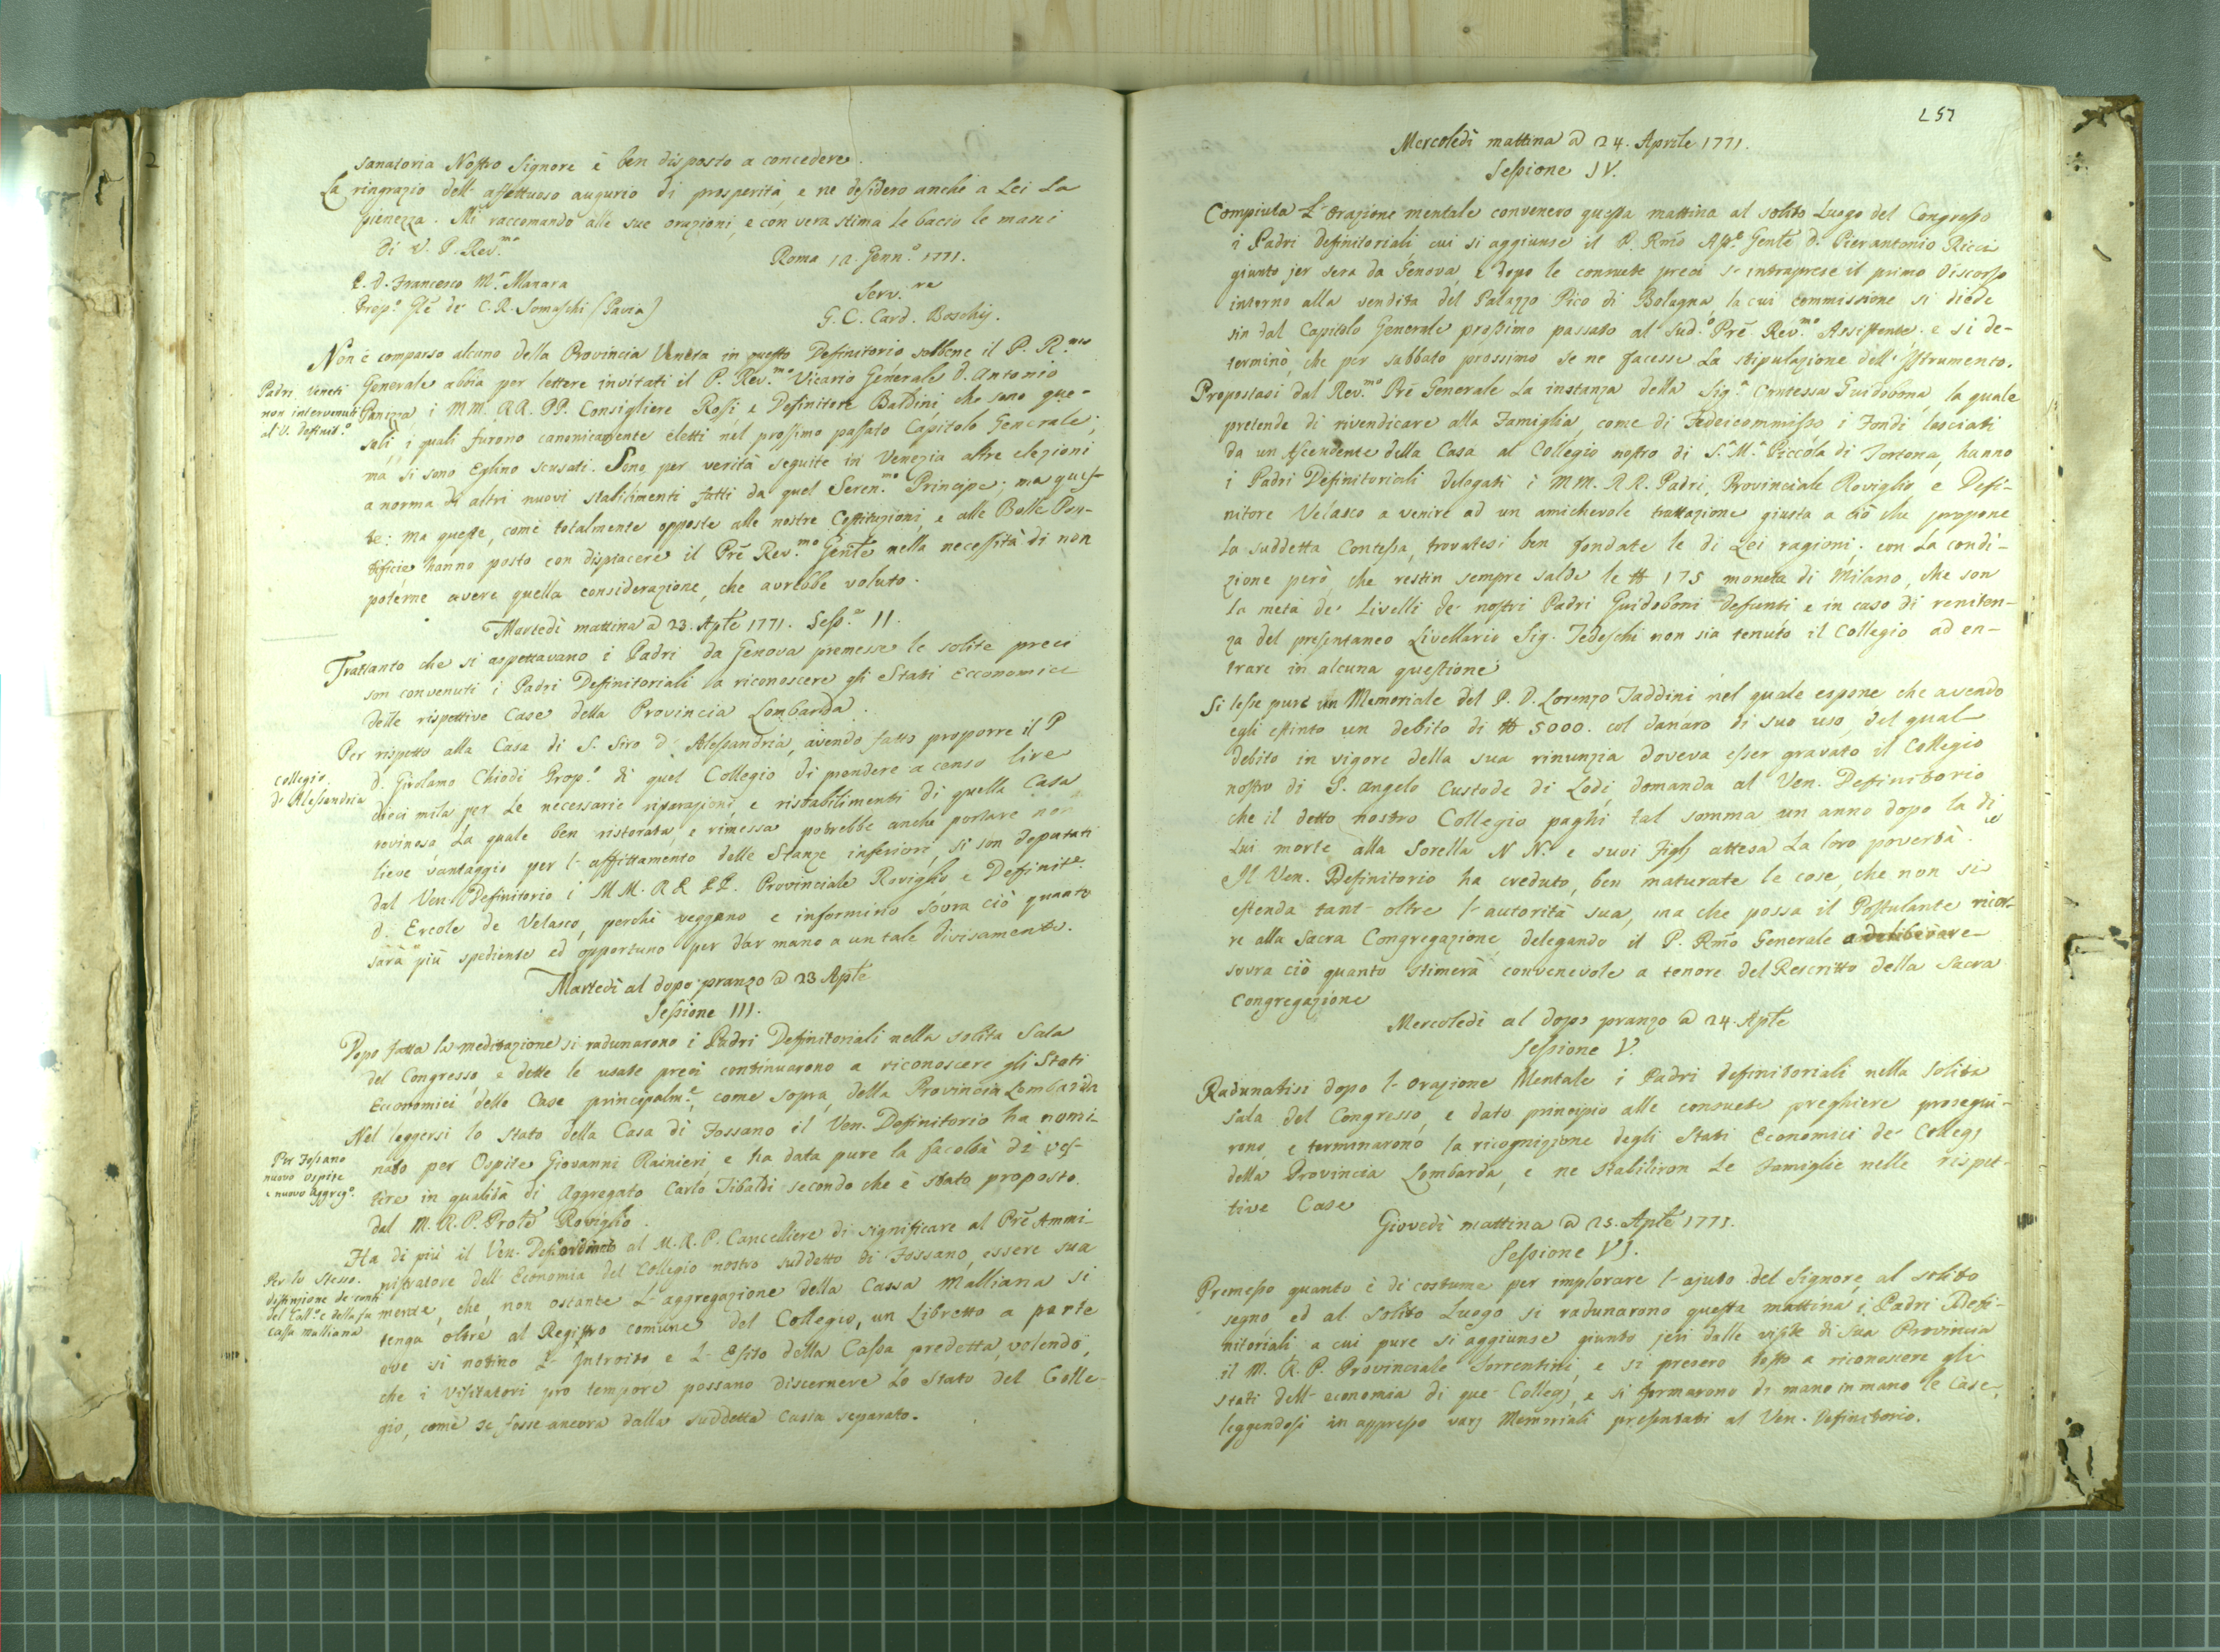 sanatoria Nostro Signore è ben disposto a concedere.
La ringrazio dell' affettuoso augurio di prosperità, e ne desidero anche a Lei la
pienezza. Mi raccomando alle sue orazioni, e con vera stima le bacio le mani
Di V. P. Rev.mo
Roma 12. Genn.o 1771.
P. D. Francesco M.a Manara
Prep.o Gle de' C. R. Somaschi (Pavia)
Serv.re
G. C. Card. Boschij.
Non è comparso alcuno della Provincia Veneta in questo Definitorio sebbene il P. R.mo
Padri Veneti
non intervenuti
al V. Definit.o
Generale abbia per lettere invitati il P. Rev.mo Vicario Generale D. Antonio
Panizza i MM. RR. PP. Consigliere Rosi e Definitore Baldini, che sono que-
soli, i quali furono canonicamente eletti nel prossimo passato Capitolo Generale;
ma si sono Eglino scusati. Sono per verità seguite in Venezia altre elezioni
a norma di altri nuovi stabilimenti fatti da quel Seren.mo Principe; ma ques-
te: ma queste, come totalmente opposte alle nostre Costituzioni, e alle Bolle Pon-
tificie hanno posto con dispiacere il Pre Rev.mo Gente nella necessità di non
poterne avere quella considerazione, che avrebbe voluto.
Martedì mattina @ 23. Aple 1771. Sess.e II.
Trattanto che si aspettavano i Padri da Genova premesse le solite preci
son convenuti i Padri Deffinitoriali a riconoscere gli Stati Ecconomici
delle rispettive Case della Provincia Lombarda.
Collegio
di Alessandria
Per rispetto alla Casa di S. Siro d' Alessandria, avendo fatto proporre il P
D. Girolamo Chiodi Prop.o di quel Collegio di prendere a censo lire
dieci mila per le necessarie riparazioni, e ristabilimenti di quella Casa
rovinosa, la quale ben ristorata, e rimessa potrebbe anche portare non
lieve vantaggio per l' affittamento delle Stanze inferiori, si son deputati
dal Ven. Definitorio i MM. RR. PP. Provinciale Roviglio e Definit.e
D. Ercole de Velasco, perchè veggano e informino sovra ciò quanto
sarà più spediente ed opportuno per dar mano a un tale divisamento.
Martedì al dopo pranzo @ 23 Aple
Sessione III.
Dopo fatta la meditazione si radunarono i Padri Definitoriali nella solita Sala
del Congresso, e dette le usate preci continuarono a riconoscere gli Stati
Economici delle Case principalm.e, come sopra, della Provincia Lombarda
Per Fossano
nuovo ospite
e nuovo Aggreg.o
Nel leggersi lo Stato della Casa di Fossano il Ven. Definitorio ha nomi-
nato per Ospite Giovanni Rainieri, e ha data pure la facoltà di ves-
tire in qualità di Aggregato Carlo Tibaldi secondo che è stato proposto.
dal M. R. P. Prole Roviglio.
Per lo Stesso.
distinzione de' conti
del Coll.o e della fu
cassa malliana
Ha di più il Ven. Def. ordinato al M. R. P. Cancelliere di significare al Pre Ammi-
nistratore dell' Economia del Collegio nostro suddetto di Fossano, essere sua
mente, che, non ostante l' aggregazione della Cassa Malliana si
tenga oltre al Registro comune del Collegio, un Libretto a parte
ove si notino l' Introito e l' Esito della Cassa predetta, volendo,
che i Visitatori pro tempore possano discernere lo Stato del Colle-
gio, come se fosse ancora dalla suddetta Cassa separato.
257
Mercoledì mattina @ 24. Aprile 1771.
Sessione IV.
Compiuta l' Orazione mentale convenero questa mattina al solito Luogo del Congresso
i Padri Definitoriali, cui si aggiunse il P. Rmo Ass.e Gente D. Pierantonio Ricci
giunto jer sera da Genova, e dopo le consuete preci s' intraprese il primo discorso
intorno alla vendita del Palazzo Pico di Bologna, la cui commissione si diede
sin dal Capitolo Generale prossimo passato al sud.o Pre Rev.mo Assistente, e si de-
terminò, che per sabbato prossimo se ne facesse la stipulazione dell' Istrumento.
Propostasi dal Rev.mo Pre Generale la instanza della Sig.a Contessa Guidobona, la quale
pretende di rivendicare alla Famiglia, come di Fedeicommisso i Fondi lasciati
da un Ascendente della Casa al Collegio nostro di S. M. Piccola di Tortona, hanno
i Padri Definitoriali delegati i MM. RR. Padri, Provinciale Roviglio e Defi-
nitore Velasco a venire ad un amichevole trattazione giusta a ciò che propone
la suddetta Contessa, trovatesi ben fondate le di Lei ragioni; con la condi-
zione però, che restin sempre salde le ₶ 175 moneta di Milano, che son
la metà de' Livelli de' nostri Padri Guidoboni defunti e in caso di reniten-
za del presentaneo Livellario Sig. Tedeschi non sia tenuto il Collegio ad en-
trare in alcuna questione
Si lesse pure un Memoriale del P. D. Lorenzo Taddini nel quale espone che avendo
egli estinto un debito di ₶ 5000. col danaro di suo uso, del qual
debito in vigore della sua rinunzia doveva esser gravato il Collegio
nostro di S. Angelo Custode di Lodi, domanda al Ven. Deffinitorio
che il detto nostro Collegio paghi tal somma un anno dopo la di
Lui morte alla Sorella N N. e suoi Figlj attesa la loro povertà.
Il Ven. Definitorio ha creduto, ben maturate le cose, che non si
estenda tant' oltre l' autorità sua, ma che possa il Postulante ricor-
re alla Sacra Congregazione, delegando il P. Rmo Generale a deliberare
sovra ciò quanto stimerà convenevole a tenore del Rescritto della Sacra
Congregazione
Mercoledì al dopo pranzo @ 24. Aple
Sessione V.
Radunatisi dopo l' Orazione Mentale i Padri deffinitoriali nella Solita
Sala del Congresso, e dato principio alle consuete preghiere prosegui-
rono, e terminarono la ricognizione degli Stati Economici de' Collegj
della Provincia Lombarda, e ne stabiliron le Famiglie nelle rispet-
tive Case
Giovedì mattina @ 25. Aple 1771.
Sessione VI.
Premesso quanto è di costume per implorare l' ajuto del Signore, al solito
segno ed al solito Luogo si radunarono questa mattina i Padri Deffi-
nitoriali a cui pure si aggiunse giunto jeri dalle visite di sua Provincia
il M. R. P. Provinciale Sorrentini, e si presero tosto a riconoscere gli
stati dell' economia di que' Collegj, e si formarono di mano in mano le Case,
leggendosi in appresso varj Memoriali presentati al Ven. Definitorio.